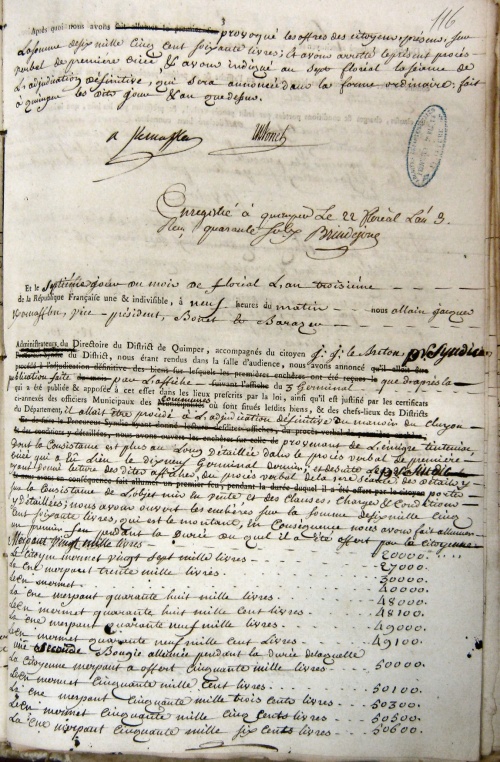 116
Après quoi nous avons fait allumer la première provoqué les offres des citoyens présens, sur
la somme de six mille cinq cent soixante livres; & avons arrêté le présent procès-
verbal de première criée, & avons indiqué au sept floréal la séance de
L'adjudication définitive, qui sera annoncée dans la forme ordinaire; fait
à quimper les dits jour & an que dessus.
Enregistré à quimper Le 22 floréal L'an 3.
Reçu quarante sols
Et le Septième jour du mois de floréal L'an troisième
de la République Française une & indivisible, à neuf heures du matin nous allain jacques
vice-président, Bonet &
Administrateurs du Directoire du District de Quimper, accompagnés du citoyen j. j. le Breton, pr Syndic
du District, nous étant rendus dans la salle d'audience, nous avons annoncé qu'il allait être
procédé à l'adjudication définitive des biens sur lesquels les premières enchères ont été reçues le que d'après la
publication faite par L'affiche suivant l'affiche du 3 Germinal
qui a été publiée & apposée à cet effet dans les lieux prescrits par la loi, ainsi qu'il est justifié par les certificats
ci-annexés des officiers Municipaux des Communes où sont situés lesdits biens, & des chefs-lieux des Districts
du Département, il allait être procédé à L'adjudication définitive du manoir du
provenant de L'émigré
dont la Consistance est plus au Long détaillée dans le procès verbal de première
criée qui a eû Lieu le dixneuf Germinal dernier, et desuite Le pr Syndic
ayant donné lecture des dites affiches, du procès verbal de la 1ere séance des détails y portés
sur la Consistance de L'objet mis en vente et des Clauses, Charges & Conditions
y détaillées; nous avons ouvert les enchères sur la somme de six mille Cinq
Cent soixante livres, qui est le montant, En Conséquence nous avons fait allumer
un premier feu pendant la durée du quel il a été offert par la citoyenne
Merpaut Vingt mille livres 20000.
Le citoyen mermet vingt sept mille livres 27000.
La Cne merpaut trente mille livres. 30000
Le Cn mermet 40000.
La Cne merpaut quarante huit mille livres 48000
Le Cn mermet quarante huit mille cent livres 48100
La Cne merpaut quarante neuf mille livres 49000
Le Cn mermet quarante neuf mille Cent Livres 49100
Une Seconde Bougie allumée pendant la durée de laquelle
La Citoyenne merpaut a offert Cinquante mille livres 50000.
Le Cn mermet Cinquante mille Cent livres 50100
La Cne merpaut Cinquante mille trois Cents livres 50300.
Le Cn mermet Cinquante mille Cinq Cents livres 50500
La Cne merpaut Cinquante mille six Cents livres 50600.